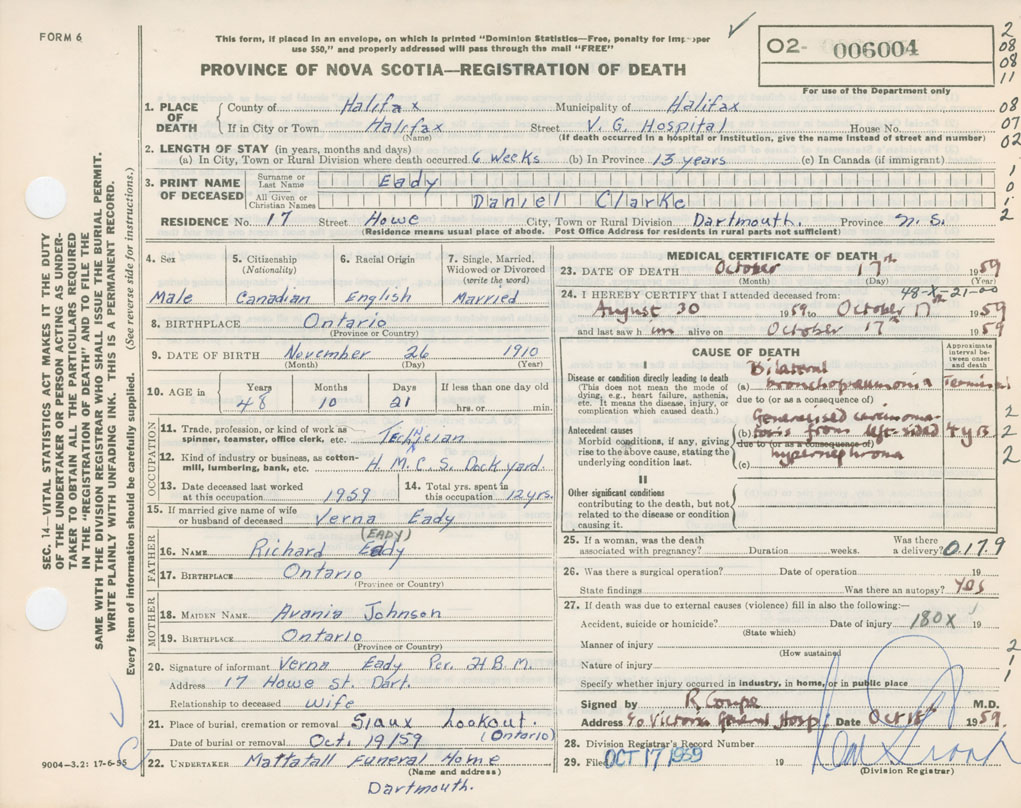 FORM 6
This form, if placed in an envelope, on which is printed "Dominion Statistics—Free, penalty for improper
use $50," and properly addressed will pass through the mail "FREE"
PROVINCE OF NOVA SCOTIA—REGISTRATION OF DEATH
02- 006004
For use of the Department only
2
08
08
11
08
07
02
1
0
1
2
SEC. 14—VITAL STATISTICS ACT MAKES IT THE DUTY
OF THE UNDERTAKER OR PERSON ACTING AS UNDER-
TAKER TO OBTAIN ALL THE PARTICULARS REQUIRED
IN THE "REGISTRATION OF DEATH" AND TO FILE THE
SAME WITH THE DIVISION REGISTRAR WHO SHALL ISSUE THE BURIAL PERMIT.
WRITE PLAINLY WITH UNFADING INK. THIS IS A PERMANENT RECORD.
Every item of information should be carefully supplied. (See reverse side for instructions.)
1. PLACE OF DEATH
County of Halifax Municipality of Halifax
If in City or Town Halifax Street V. G. Hospital House No.
(Name) (If death occurred in a hospital or institution, give the name instead of street and number)
2. LENGTH OF STAY (in years, months and days)
(a) In City, Town or Rural Division where death occurred 6 weeks (b) In Province 13 years (c) In Canada (if immigrant)
3. PRINT NAME OF DECEASED
Surname or Last Name Eady
All Given or Christian Names Daniel Clarke
RESIDENCE No. 17 Street Howe City, Town or Rural Division Dartmouth. Province N. S.
(Residence means usual place of abode. Post Office Address for residents in rural parts not sufficient)
4. Sex 5. Citizenship (Nationality) 6. Racial Origin 7. Single, Married, Widowed or Divorced (write the word)
Male Canadian English Married
8. BIRTHPLACE Ontario
(Province or Country)
9. DATE OF BIRTH November 26 1910
(Month) (Day) (Year)
10. AGE in Years Months Days If less than one day old
48 10 21 hrs. or min.
OCCUPATION
11. Trade, profession, or kind of work as
spinner, teamster, office clerk, etc. Technician
12. Kind of industry or business, as cotton-
mill, lumbering, bank, etc. H.M.C.S. Dockyard.
13. Date deceased last worked
at this occupation 1959
14. Total yrs. spent in
this occupation 12 yrs.
15. If married give name of wife
or husband of deceased Verna Eady
FATHER
(EADY)
16. NAME Richard Eddy
17. BIRTHPLACE Ontario
(Province or Country)
MOTHER
18. MAIDEN NAME Avania Johnson
19. BIRTHPLACE Ontario
(Province or Country)
20. Signature of informant Verna Eady Per. H B. M.
Address 17 Howe St. Dart.
Relationship to deceased wife
21. Place of burial, cremation or removal Siaux Lookout.
Date of burial or removal Oct. 19/59 (Ontario)
22. UNDERTAKER Mattatall Funeral Home
(Name and address)
Dartmouth.
9004-3.2: 17-6-55
MEDICAL CERTIFICATE OF DEATH
23. DATE OF DEATH October 17th 1959
(Month) (Day) (Year)
48-X-21-00
24. I HEREBY CERTIFY that I attended deceased from:
August 30 1959 to October 17th 1959
and last saw him alive on October 17th 1959
CAUSE OF DEATH
Approximate interval between onset and death
I
Disease or condition directly leading to death
(This does not mean the mode of
dying, e.g., heart failure, asthenia,
etc. It means the disease, injury, or
complication which caused death.)
Bilateral
(a) bronchopneumonia Terminal
due to (or as a consequence of)
Antecedent causes
Morbid conditions, if any, giving
rise to the above cause, stating the
underlying condition last.
Generalised carcinoma-
(b) tosis from left-sided 4 yrs
due to (or as a consequence of)
hypernephroma
(c)
2
2
2
II
Other significant conditions
contributing to the death, but not
related to the disease or condition
causing it.
25. If a woman, was the death
associated with pregnancy? Duration weeks. Was there a delivery? 0.17.9
26. Was there a surgical operation? Date of operation 19
State findings Was there an autopsy? Yes
27. If death was due to external causes (violence) fill in also the following:—
Accident, suicide or homicide? Date of injury 180X 19
(State which)
Manner of injury
(How sustained)
Nature of injury
2
1
1
Specify whether injury occurred in industry, in home, or in public place
Signed by R. Coupe M.D.
Address c/o Victoria General Hosp. Date Oct 18th 1959.
28. Division Registrar's Record Number
29. Filed OCT 17 1959 19
(Division Registrar)